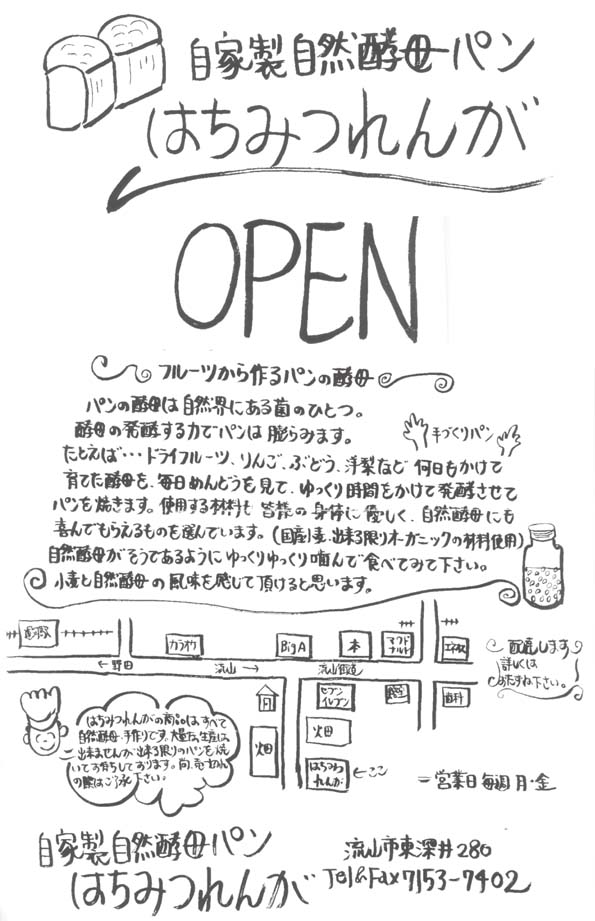 自家製自然酵母パン
はちみつれんが
OPEN
フルーツから作るパンの酵母
パンの酵母は自然界にある菌のひとつ。
酵母の発酵する力でパンは膨らみます。
手づくりパン
たとえば…ドライフルーツ、りんご、ぶどう、洋梨など何日もかけて
育てた酵母を、毎日めんどうを見て、ゆっくり時間をかけて発酵させて
パンを焼きます。使用する材料も皆様の身体に優しく、自然酵母にも
喜んでもらえるものを選んでいます。(国産小麦、出来る限りオーガニックの材料使用)
自然酵母がそうであるようにゆっくりゆっくり噛んで食べてみて下さい。
小麦と自然酵母の風味を感じて頂けると思います。
運河駅
カラオケ
Big A
本
マクドナルド
エネオス
配達します
詳しくは
おたずね下さい。
←野田
流山→
流山街道
セブンイレブン
歯科
畑
畑
はちみつれんが
←ここ
はちみつれんがの商品は、すべて
自然酵母、手作りです。大量な生産は
出来ませんが出来る限りのパンを焼
いてお待ちしております。尚、売り切れ
の際はご了承下さい。
営業日毎週月・金
自家製自然酵母パン
はちみつれんが
流山市東深井280
Tel&Fax 7153-7402